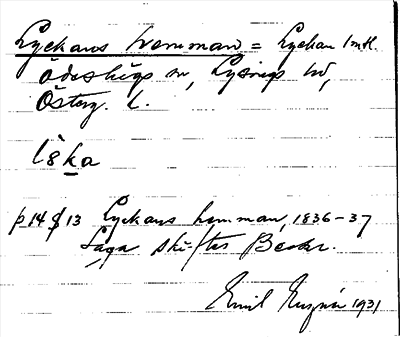 Lyckans hemman = Lyckan 1 mtl.
Ödeshögs sn, Lysings hd,
Österg. l.
l`ø̀ka
p 14 § 13 Lyckans hemman, 1836-37
Laga skiftes Beskr.
Emil 1931